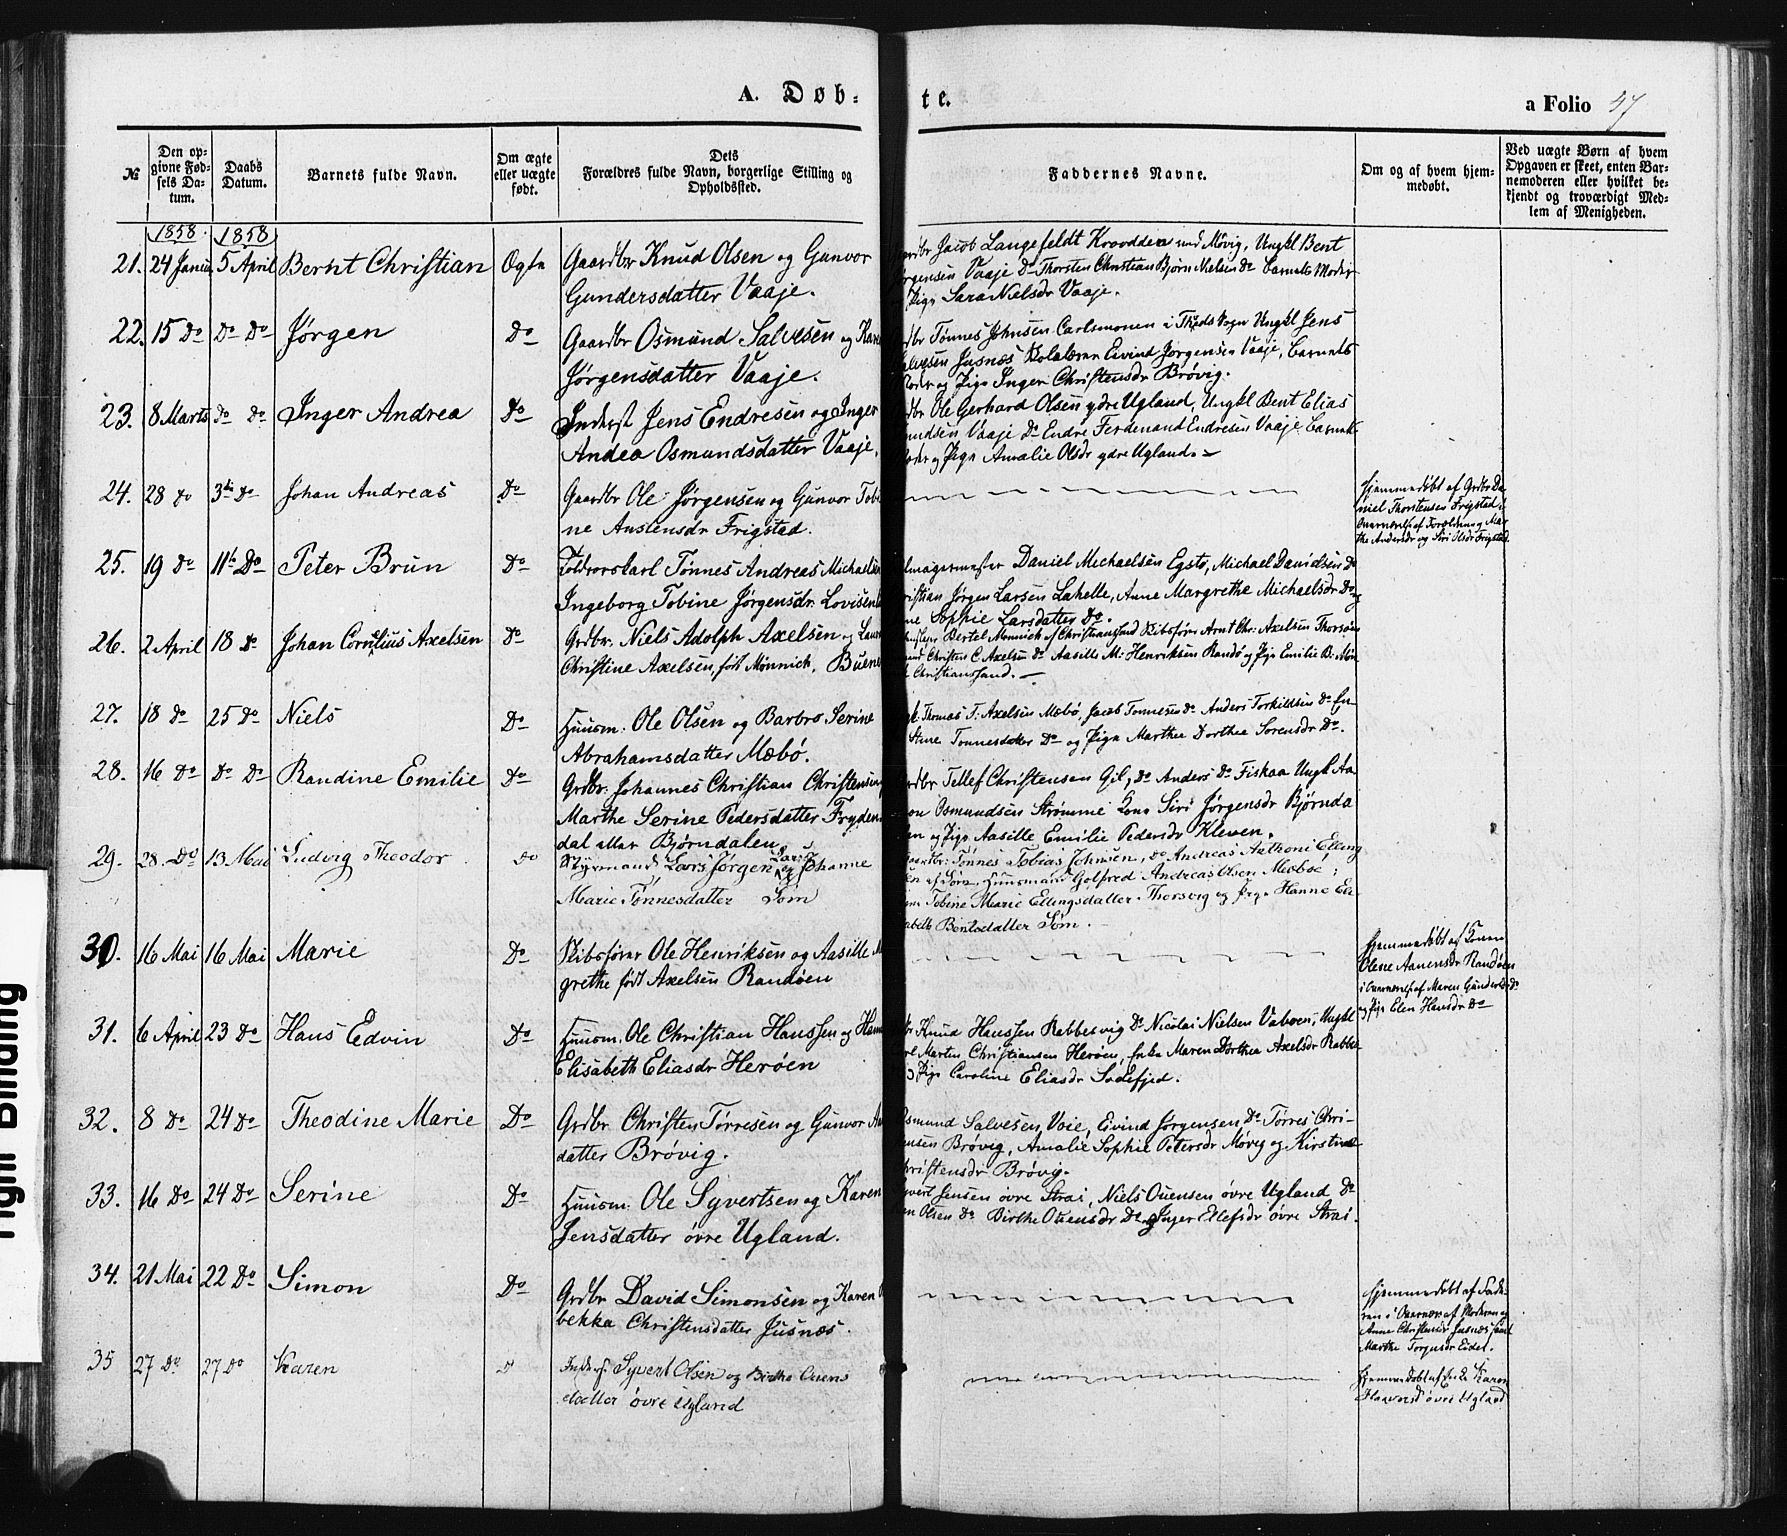 A. Døb-
te.
a Folio 47
№
Den opgivne Fødsels Datum.
Daabs Datum.
Barnets fulde Navn.
Om ægte eller uægte født.
Dets Forældres fulde Navn, borgerlige Stilling og Opholdsted.
Faddernes Navne.
Om og af hvem hjemmedøbt.
Ved uægte Børn af hvem Opgaven er skeet, enten Barnemoderen eller hvilket bekjendt og troværdigt Medlem af Menigheden.
1858. 1858
21. 24 Janu. 5 April Bernt Christian Ægte Gaardbr Knud Olsen og Gunvor
Gundersdatter Vaaje.
Jacob Langefeldt Kroodden ved Møvig, Ungkl Bent
Jørgensen Vaaje Do Thorsten Christian Bjørn Nielsen Do Barnets Moder
Pige Sara Nielsdr Vaaje.
22. 15 Do Do Do Jørgen Do Gaardbr Osmund Salvesen og Kare
Jørgensdatter Vaaje.
Tønnes Johnsen Carlsmonen i Sogn Ungkl Jens
Salvesen Jusnæs Eivind Jørgensen Vaaje, Barnets
Moder og Pige Inger Christensdr Brøvig.
23. 8 Marts Do Do Inger Andrea Do Inderst Jens Endresen og Inger
Andea Osmundsdatter Vaaje.
Ole Gerhard Olsen ydre Ugland, Ungkl Bent Elias
Knudsen Vaaje Do Endre Ferdenand Endresen Vaaje Barnets
Moder og Pige Amalie Olsdr ydre Ugland.
24. 28 Do 3die Do Johan Andreas Do Gaardbr Ole Jørgensen og Gunvor Tobi
ne Austensdr Frigstad.
Hjemmedøbt af Grdbr Da
niel Thorstensen Frigstad i
Overværelse af Forældrene og Mar
the Andersdr og Siri Olsdr Frigstad
25. 19 Do 11te Do Peter Brun Do Toldrorskarl Tønnes Andreas Michaelsen
Ingeborg Tobine Jørgensdr Lovisen
Daniel Michaelsen Egstø, Michael Davidsen Do
Christian Jørgen Larsen Lahelle, Anne Margrethe Michaelsdr Do og
Sophie Larsdatter Do.
26. 2 April 18 Do Johan Cornelius Axelsen Do Grdbr. Niels Adolph Axelsen og
Christine Axelsen, født Mønnich, Buene
Bertel Mønnich af Christiansand Skibsfører Arnt Chr. Axelsen Thorsøen
Christen C. Axelsen Do Aasille M. Henriksen Randø og Pige Emilie B. Møn
Christiansand.
27. 18 Do 25 Do Niels Do Huusm. Ole Olsen og Barbro Serine
Abrahamsdatter Mæbø.
Thomas T. Axelsen Mæbø, Jacob Tønnesen Do Anders Torkildsen Do
Stine Tønnesdatter Do og Pige Marthea Dorthea Sørensdr Do.
28. 16 Do Do Do Randine Emilie Do Grdbr. Johannes Christian Christensen
Marthe Serine Pedersdatter Fryden
dal eller Bjørndalen
Tellef Christensen Gil, Do Anders Do Fiskaa Ungkl Aa
Osmundsen Strømme Kone Siri Jørgensdr Bjørnda
len og Pige Aasille Emilie Pedersdr Kleven.
29. 28. Do 13 Mai Ludvig Theodor Do Styrmand Lars Jørgen Larsen og Johanne
Marie Tønnesdatter Søm
Gaardbr. Tønnes Tobias Johnsen, Do Andreas Anthoni Elling
sen af Søm, Huusmand Golfred Andreas Olsen Mæboe,
Tobine Marie Ellingsdatter Thorsvig og Pige Hanne Eli
sabeth Bentsdatter Søm.
30. 16 Mai 16 Mai Marie Do Skibsfører Ole Henriksen og Aasille M
grethe født Axelsen Randøen
Hjemmedøbt af Konen
Olene Aanensdr Randøen
i Overværelse af Maren Gundersdr Do
og Pige Elen Hansdr Do
31. 6 April 23 Do Hans Edvin Do Huusm. Ole Christian Hanssen og Hann
Elisabeth Eliasdr Herøen
Knud Hanssen Rabbesvig Do Nicolai Nielsen Vaboen, Ungkl
Martin Christiansen Herøen, Enke Maren Dorthea Axelsdr Rabbe
og Pige Caroline Eliasdr Sodefjed.
32. 8 Do 24 Do Theodine Marie Do Grdbr. Christen Tørresen og Gunvor
datter Brøvig.
Osmund Salvesen Voie, Eivind Jørgensen Do Tørres Chri-
stensen Brøvig, Amalie Sophie Petersdr Møvig og Kirstine
Christensdr Brøvig.
33. 16 Do 24 Do Serine Do Huusm. Ole Syvertsen og Karen
Jensdatter øvre Ugland.
Syvert Jensen øvre Strai, Niels Ouensen øvre Ugland Do
Olsen Do Birthe Ouensdr Do og Inger Ellefsdr øvre Strai.
34. 21 Mai 22 Do Simon Do Grdbr David Simonsen og Karen R
bekka Christensdatter Jusnæs.
Hjemmedøbt af Fade-
ren i Overvær af Moderen og
Anne Christensdr Jusnæs samt
Marthe Torgersdr Eidet.
35 27 Do 27 Do Karen Inderst Syvert Olsen og Birthe Ouens
datter øvre Ugland
Hjemmedøbt af Enke Karen
øvre Ugland